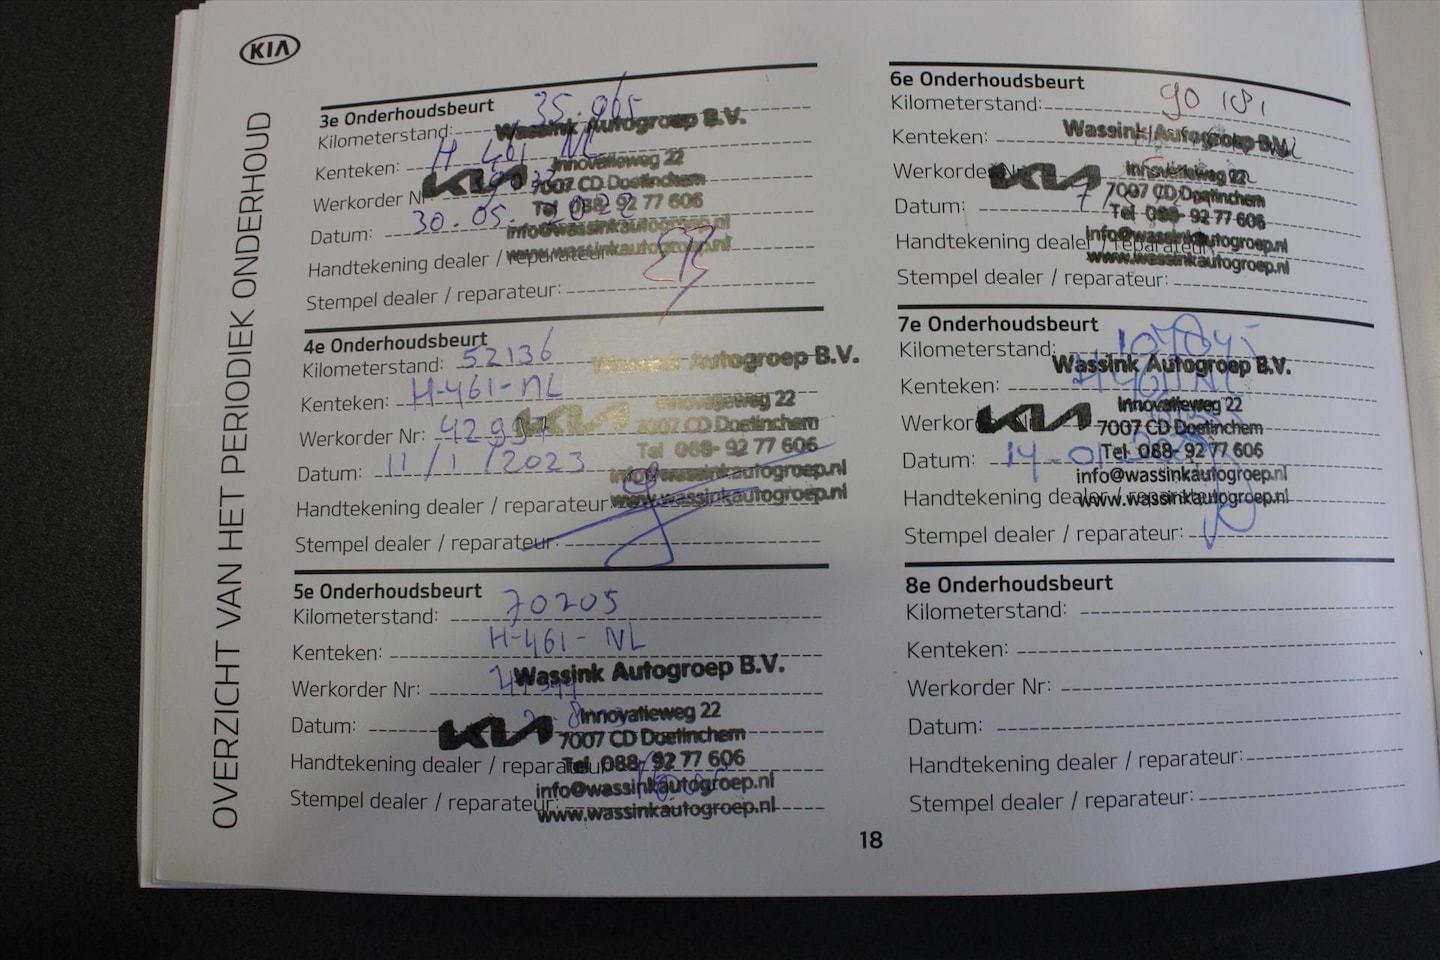 KIA
OVERZICHT VAN HET PERIODIEK ONDERHOUD
3e Onderhoudsbeurt
Kilometerstand: 35.965
Wassink Autogroep B.V.
Kenteken: H 461 NL
Innovatieweg 22
KIA
Werkorder Nr
7007 CD Doetinchem
Tel 088- 92 77 606
Datum: 30.05.2022
info@wassinkautogroep.nl
Handtekening dealer / reparateur
www.wassinkautogroep.nl
Stempel dealer / reparateur:
4e Onderhoudsbeurt
Kilometerstand: 52136
Wassink Autogroep B.V.
Kenteken: H-461-NL
Innovatieweg 22
KIA
Werkorder Nr: 42997
7007 CD Doetinchem
Tel 088- 92 77 606
Datum: 11/1/2023
info@wassinkautogroep.nl
Handtekening dealer / reparateur:
www.wassinkautogroep.nl
Stempel dealer / reparateur:
5e Onderhoudsbeurt
Kilometerstand: 70205
Kenteken: H-461-NL
Wassink Autogroep B.V.
Werkorder Nr:
Innovatieweg 22
Datum:
KIA
7007 CD Doetinchem
Tel 088- 92 77 606
Handtekening dealer / reparateur
info@wassinkautogroep.nl
Stempel dealer / reparateur:
www.wassinkautogroep.nl
6e Onderhoudsbeurt
Kilometerstand: 90181
Kenteken:
Wassink Autogroep B.V.
Werkorder Nr
KIA
Innovatieweg 22
7007 CD Doetinchem
Datum:
Tel 088- 92 77 606
info@wassinkautogroep.nl
Handtekening dealer / reparateur
www.wassinkautogroep.nl
Stempel dealer / reparateur:
7e Onderhoudsbeurt
Kilometerstand:
Wassink Autogroep B.V.
Kenteken:
Innovatieweg 22
KIA
7007 CD Doetinchem
Tel 088- 92 77 606
Datum: 14-01-
info@wassinkautogroep.nl
Handtekening dealer /
www.wassinkautogroep.nl
Stempel dealer / reparateur:
8e Onderhoudsbeurt
Kilometerstand:
Kenteken:
Werkorder Nr:
Datum:
Handtekening dealer / reparateur:
Stempel dealer / reparateur:
18